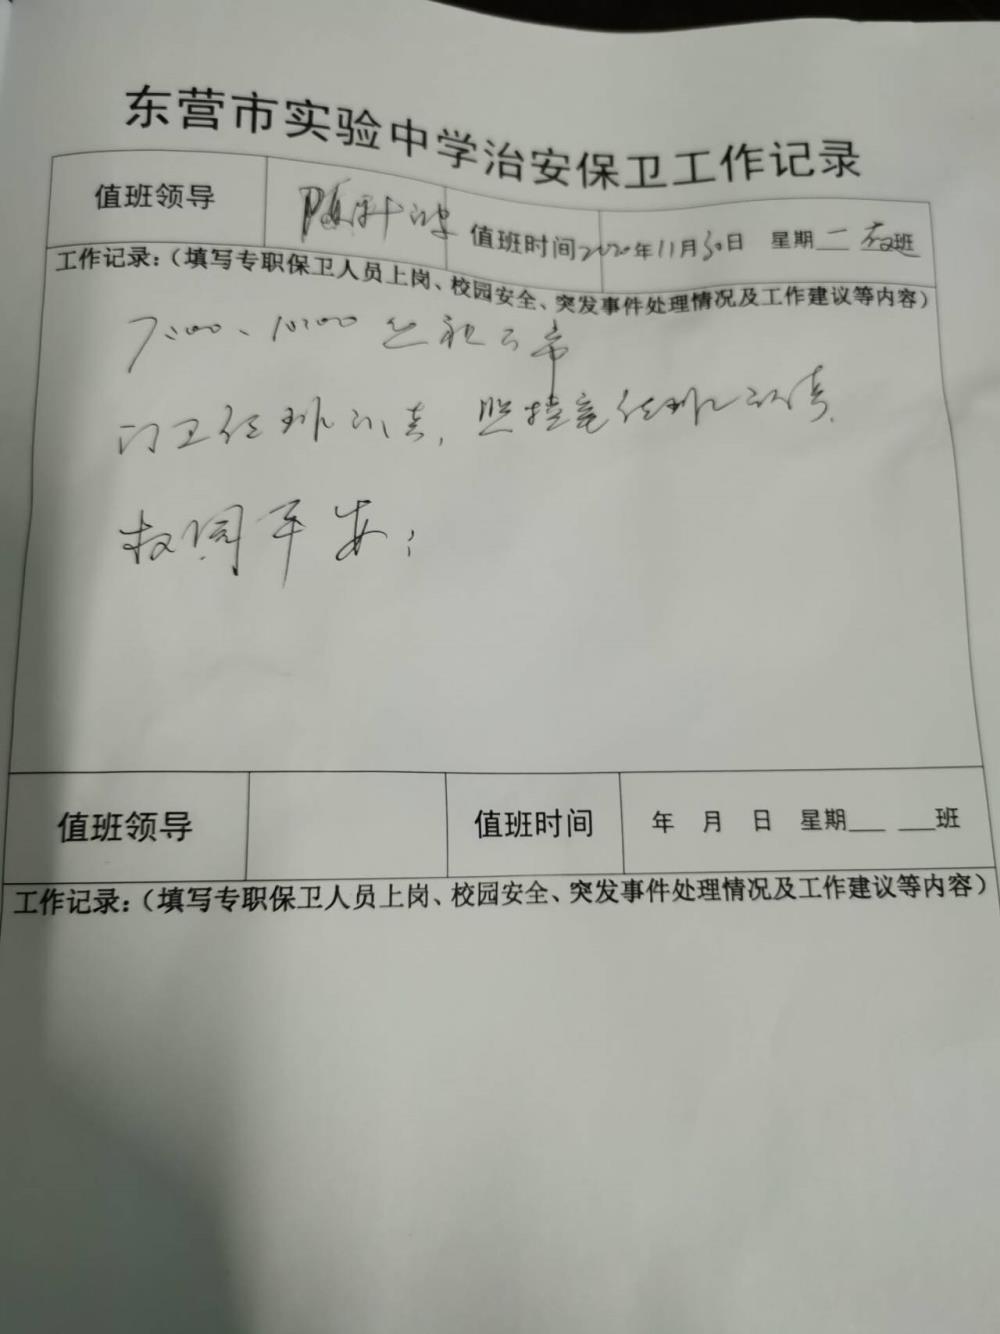 东营市实验中学治安保卫工作记录
值班领导 值班时间 2020年11月30日 星期二 夜班
工作记录：（填写专职保卫人员上岗、校园安全、突发事件处理情况及工作建议等内容）
7:00、10:00
门卫值班认真，监控室值班认真，
校园平安；
值班领导 值班时间 年 月 日 星期___ ___班
工作记录：（填写专职保卫人员上岗、校园安全、突发事件处理情况及工作建议等内容）